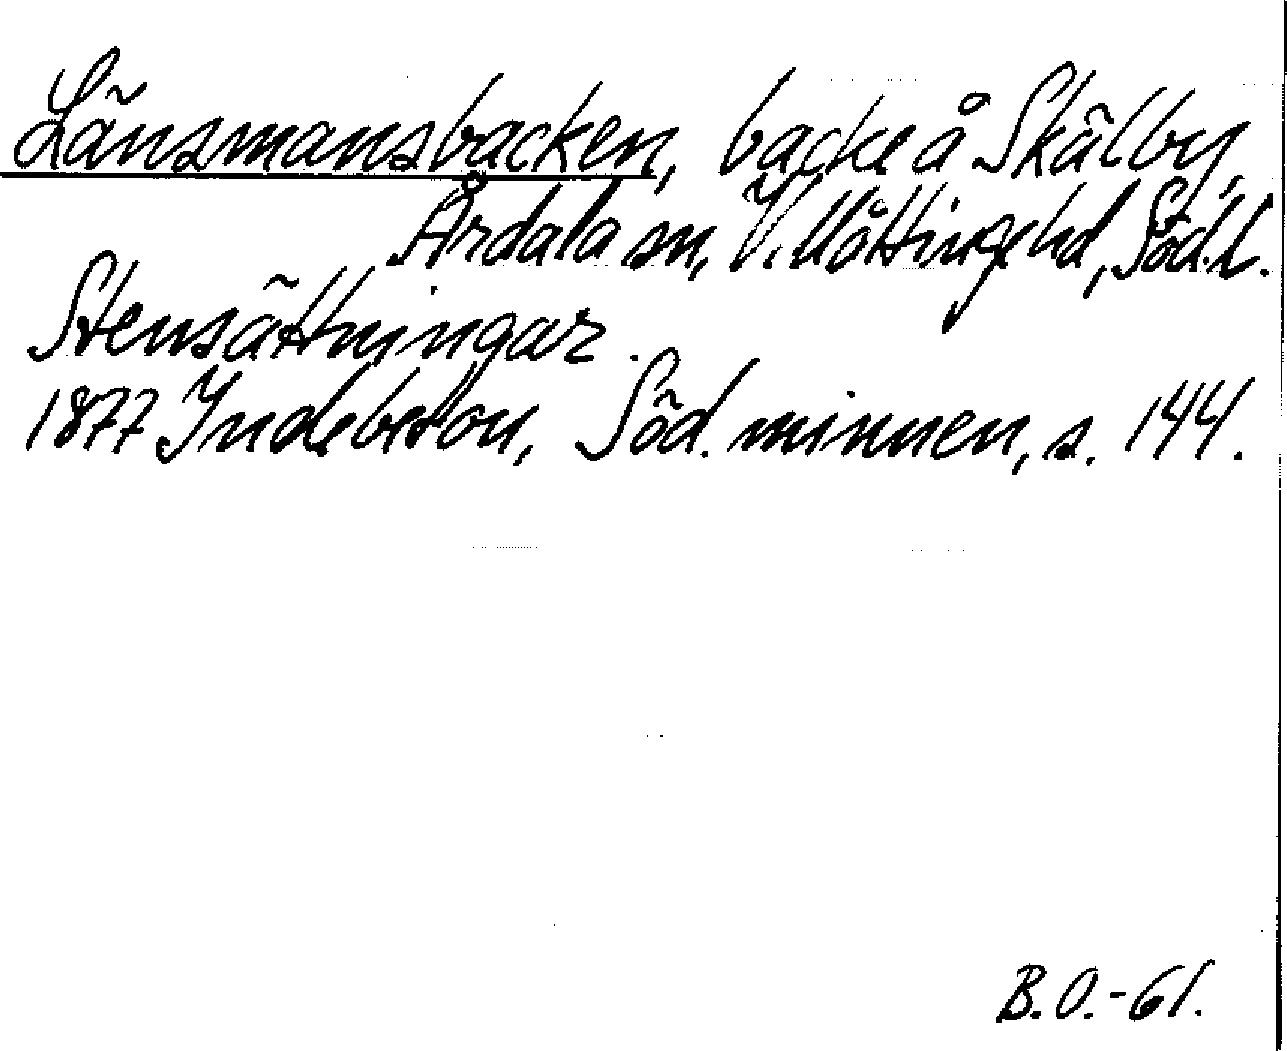 Länsmansbacken, backe å Skälby,
Årdala sn, Villåttinge hd, Södl.
Stensättningar.
1877 Indebetou, Söd. minnen, s. 144.
B.O.-61.